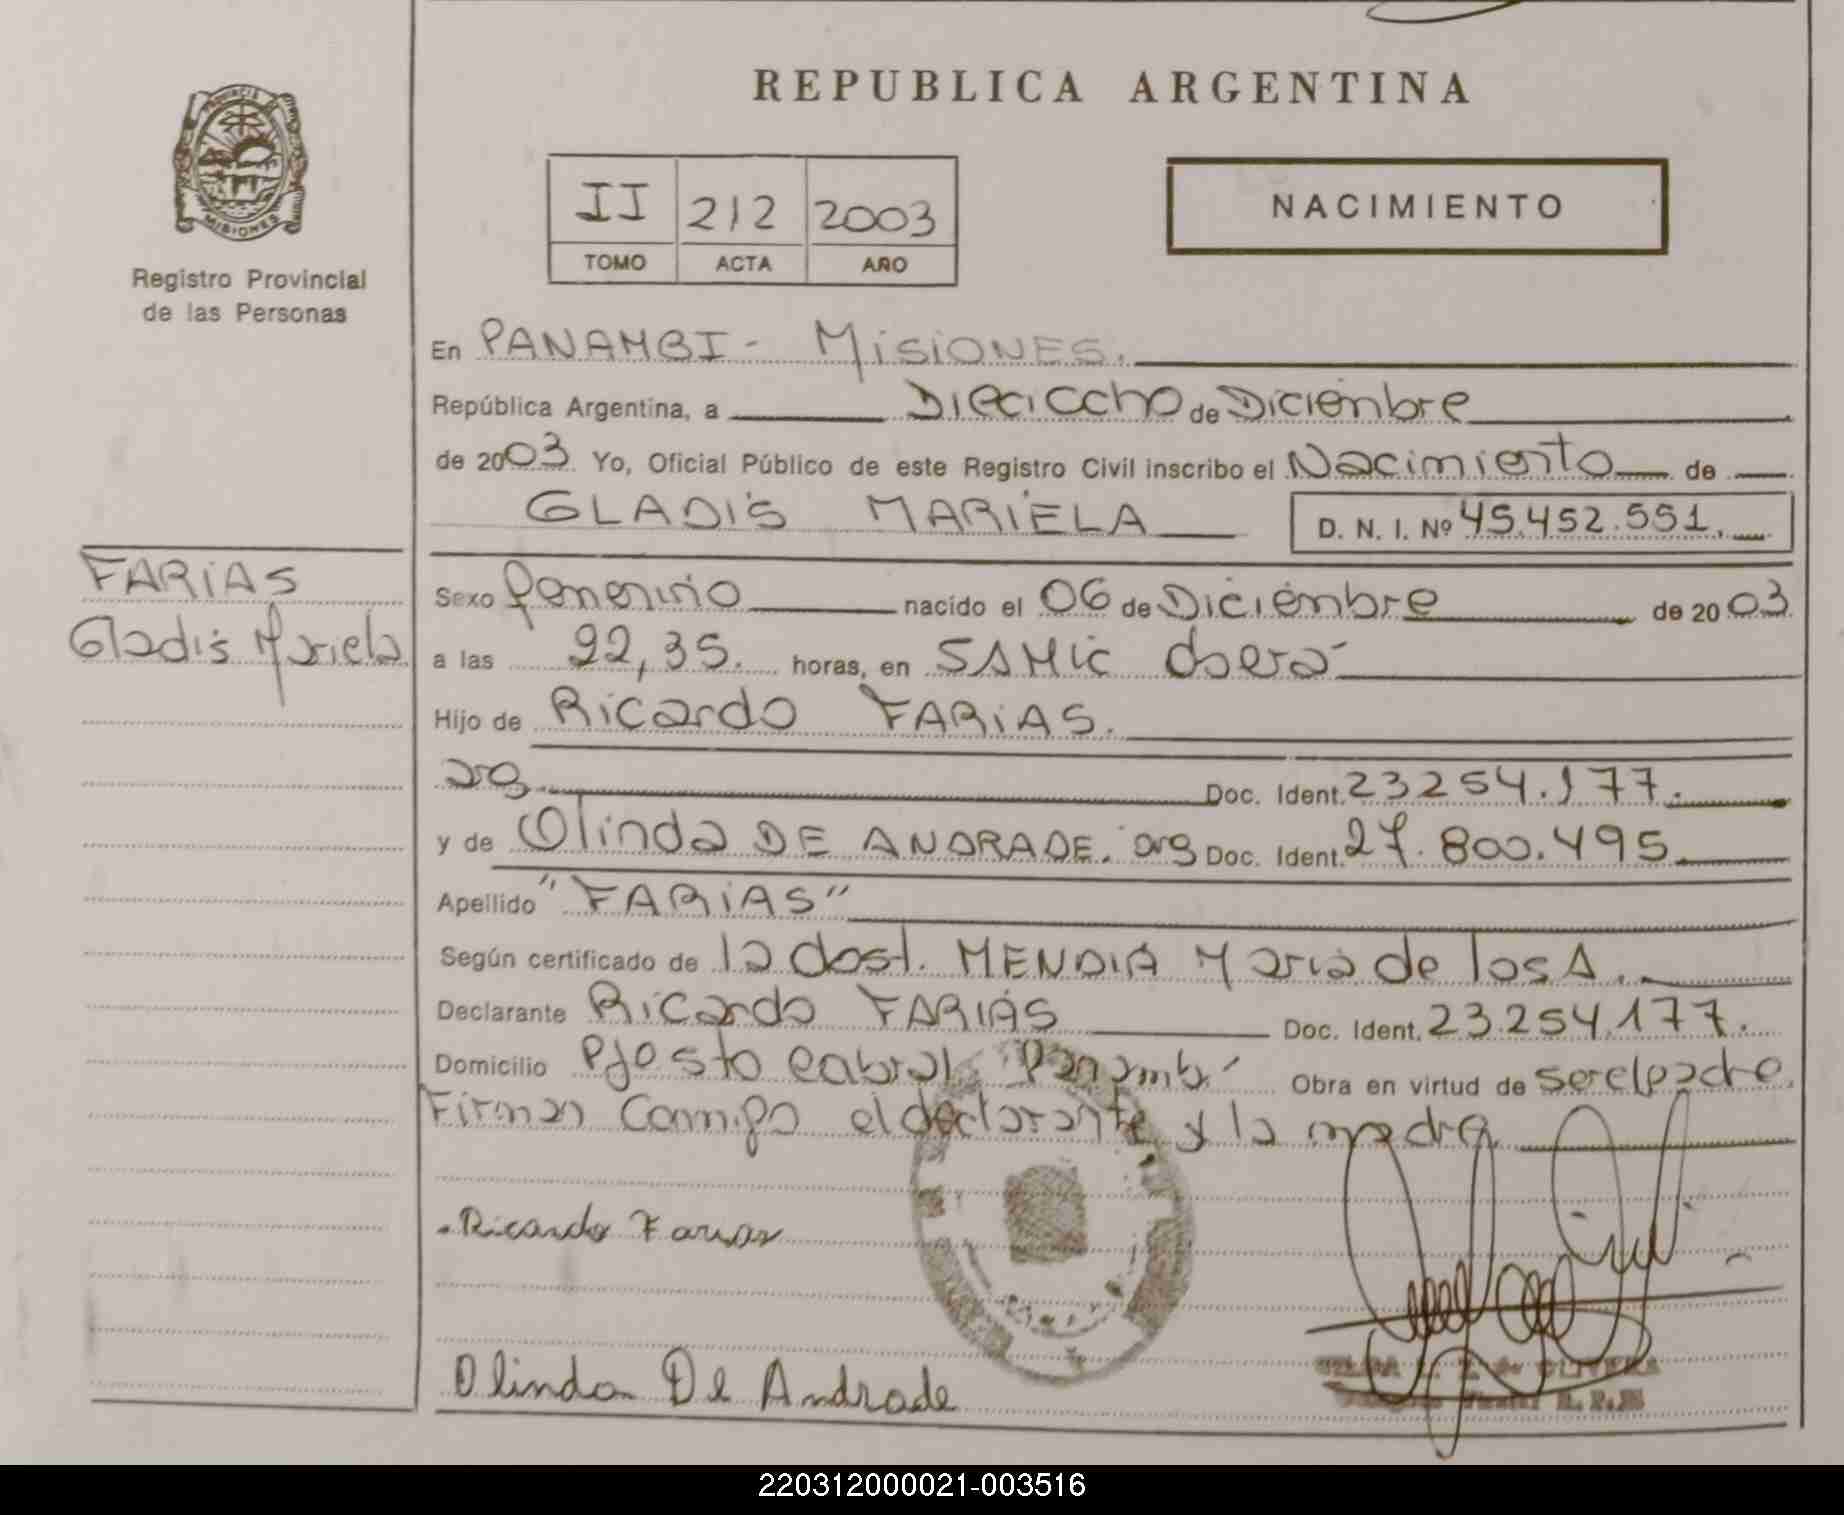 REPUBLICA ARGENTINA
PROVINCIA DE
MISIONES
Registro Provincial
de las Personas
II 212 2003
TOMO ACTA AÑO
NACIMIENTO
En PANAMBI - MISIONES.
República Argentina, a Dieciocho de Diciembre
de 2003 Yo, Oficial Público de este Registro Civil inscribo el Nacimiento de
GLADIS MARIELA D. N. I. Nº 45.452.551.
FARIAS
Gladis Mariela
Sexo femenino nacido el 06 de Diciembre de 2003
a las 22,35. horas, en SAMIC Oberá
Hijo de Ricardo FARIAS.
arg Doc. Ident. 23254.177.
y de Olinda DE ANDRADE. arg Doc. Ident. 27.800.495
Apellido "FARIAS"
Según certificado de la obst. MENDIA Maria de los A.
Declarante Ricardo FARIAS Doc. Ident. 23.254.177.
Domicilio Pje Sgto Cabral Panambi Obra en virtud de ser el padre.
Firman Conmigo el declarante y la madre
Ricardo Farias
Olinda De Andrade
de OLIVERA
220312000021-003516